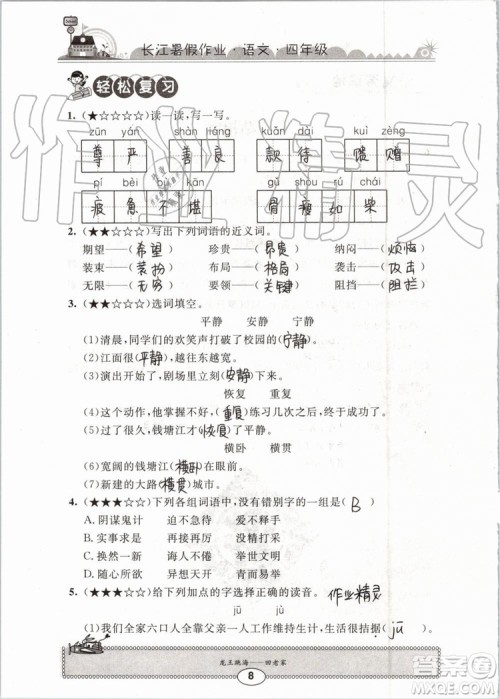 长江暑假作业·语文·四年级
轻松复习
1. (★☆☆☆☆)读一读,写一写。
zūn yán shàn liáng kuǎn dài kuì zèng
尊 严 善 良 款 待 馈 赠
pí bèi bù kān gǔ shòu rú chái
疲 惫 不 堪 骨 瘦 如 柴
2. (★★☆☆☆)写出下列词语的近义词。
期望——(希望) 珍贵——(昂贵) 纳闷——(烦恼)
装束——(装扮) 布局——(格局) 袭击——(攻击)
无限——(无穷) 要领——(关键) 阻挡——(阻拦)
3. (★★☆☆☆)选词填空。
平静 安静 宁静
(1)清晨,同学们的欢笑声打破了校园的(宁静)。
(2)江面很(平静),越往东越宽。
(3)演出开始了,剧场里立刻(安静)下来。
恢复 重复
(4)这个动作,他掌握不好,(重复)练习几次之后,终于成功了。
(5)过了很久,钱塘江才(恢复)了平静。
横卧 横贯
(6)宽阔的钱塘江(横卧)在眼前。
(7)新建的大路(横贯)城市。
4. (★★★☆☆)下列各组词语中,没有错别字的一组是( B )
A. 阴谋鬼计 迫不急待 爱不释手
B. 实事求是 再接再厉 突如其来
C. 换然一新 诲人不倦 举世文明
D. 随心所欲 异想天开 青而易举
5. (★★★☆☆)给下列加点的字选择正确的读音。 作业精灵
jū jù
(1)我们全家六口人全靠父亲一人工作维持生计,生活很拮据。( jū )
龙王跳海——回老家
8
作业精灵
答案圈